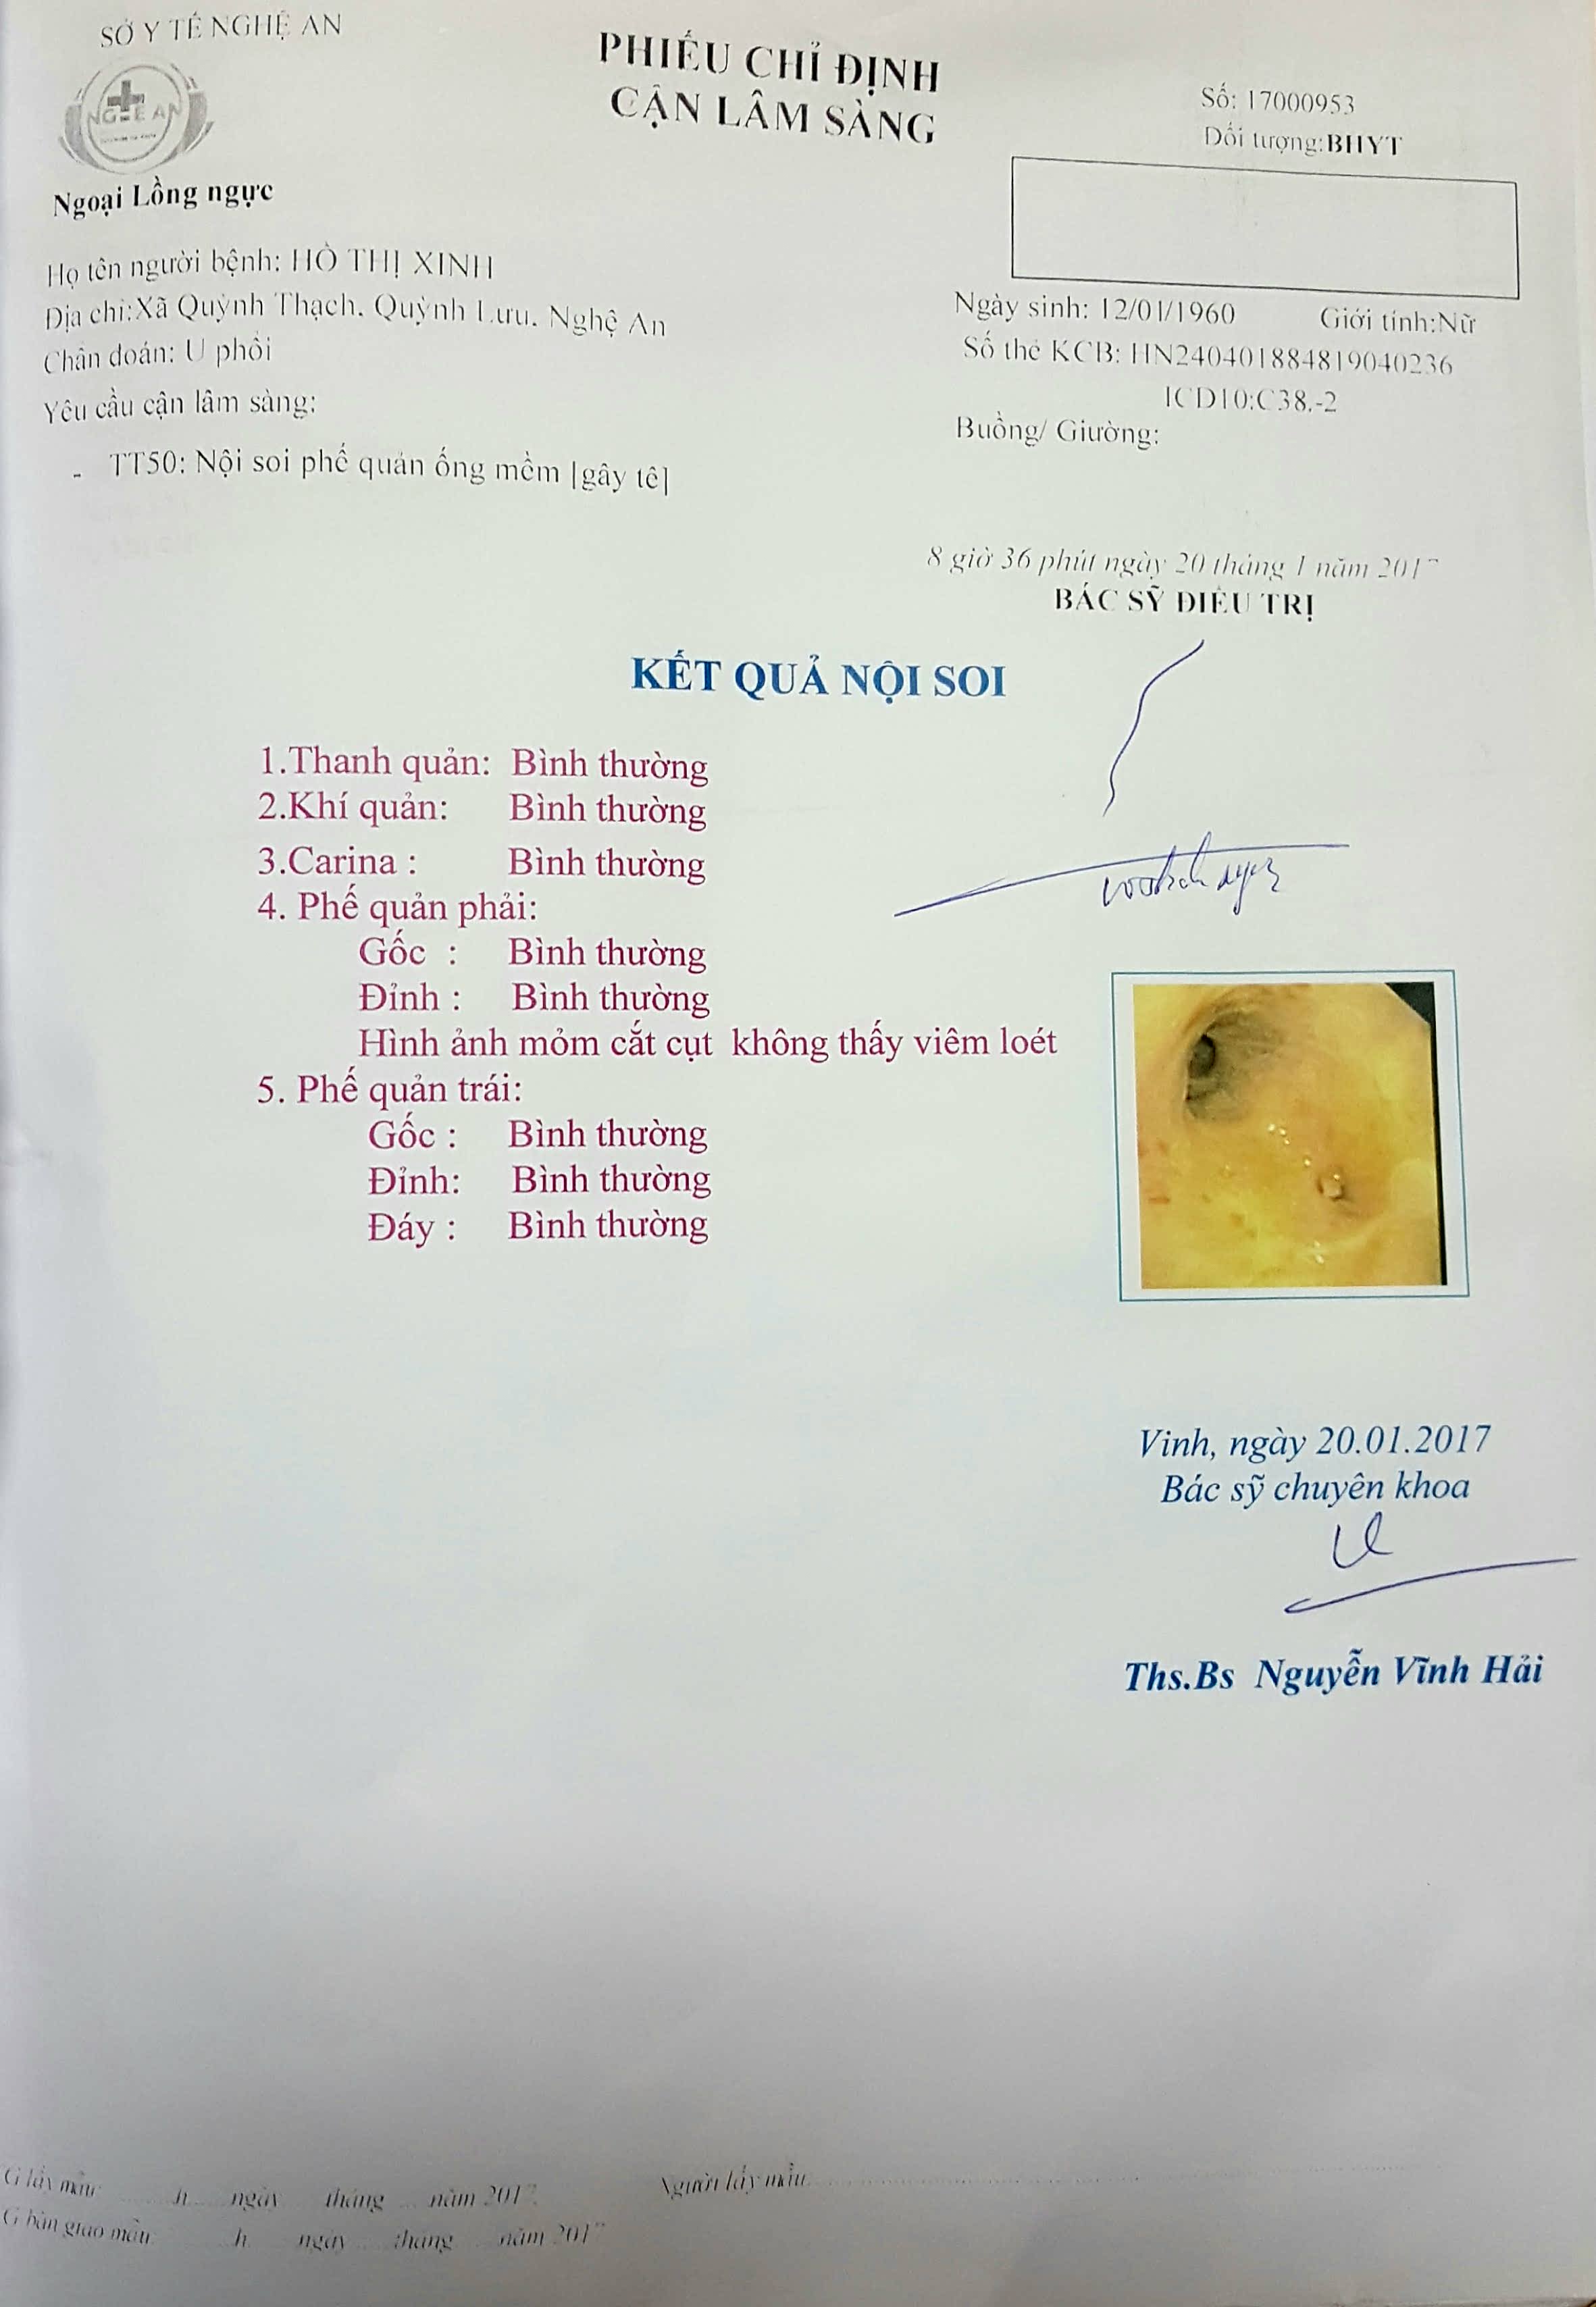 SỞ Y TẾ NGHỆ AN
PHIẾU CHỈ ĐỊNH
CẬN LÂM SÀNG
Số: 17000953
Đối tượng:BHYT
NGHỆ AN
Ngoại Lồng ngực
Họ tên người bệnh: HỒ THỊ XINH
Ngày sinh: 12/01/1960 Giới tính:Nữ
Địa chỉ:Xã Quỳnh Thạch, Quỳnh Lưu, Nghệ An
Số thẻ KCB: HN240401884819040236
Chẩn đoán: U phổi
ICD10:C38.-2
Yêu cầu cận lâm sàng:
Buồng/ Giường:
- TT50: Nội soi phế quản ống mềm [gây tê]
8 giờ 36 phút ngày 20 tháng 1 năm 2017
BÁC SỸ ĐIỀU TRỊ
KẾT QUẢ NỘI SOI
1.Thanh quản: Bình thường
2.Khí quản: Bình thường
3.Carina : Bình thường
4. Phế quản phải:
Gốc : Bình thường
Đỉnh : Bình thường
Hình ảnh mỏm cắt cụt không thấy viêm loét
5. Phế quản trái:
Gốc : Bình thường
Đỉnh: Bình thường
Đáy : Bình thường
Vinh, ngày 20.01.2017
Bác sỹ chuyên khoa
Ths.Bs Nguyễn Vĩnh Hải
G lấy mẫu: ......h..... ngày ... tháng ... năm 2017. Người lấy mẫu:
G bàn giao mẫu ......h ... ngày ... tháng ... năm 2017